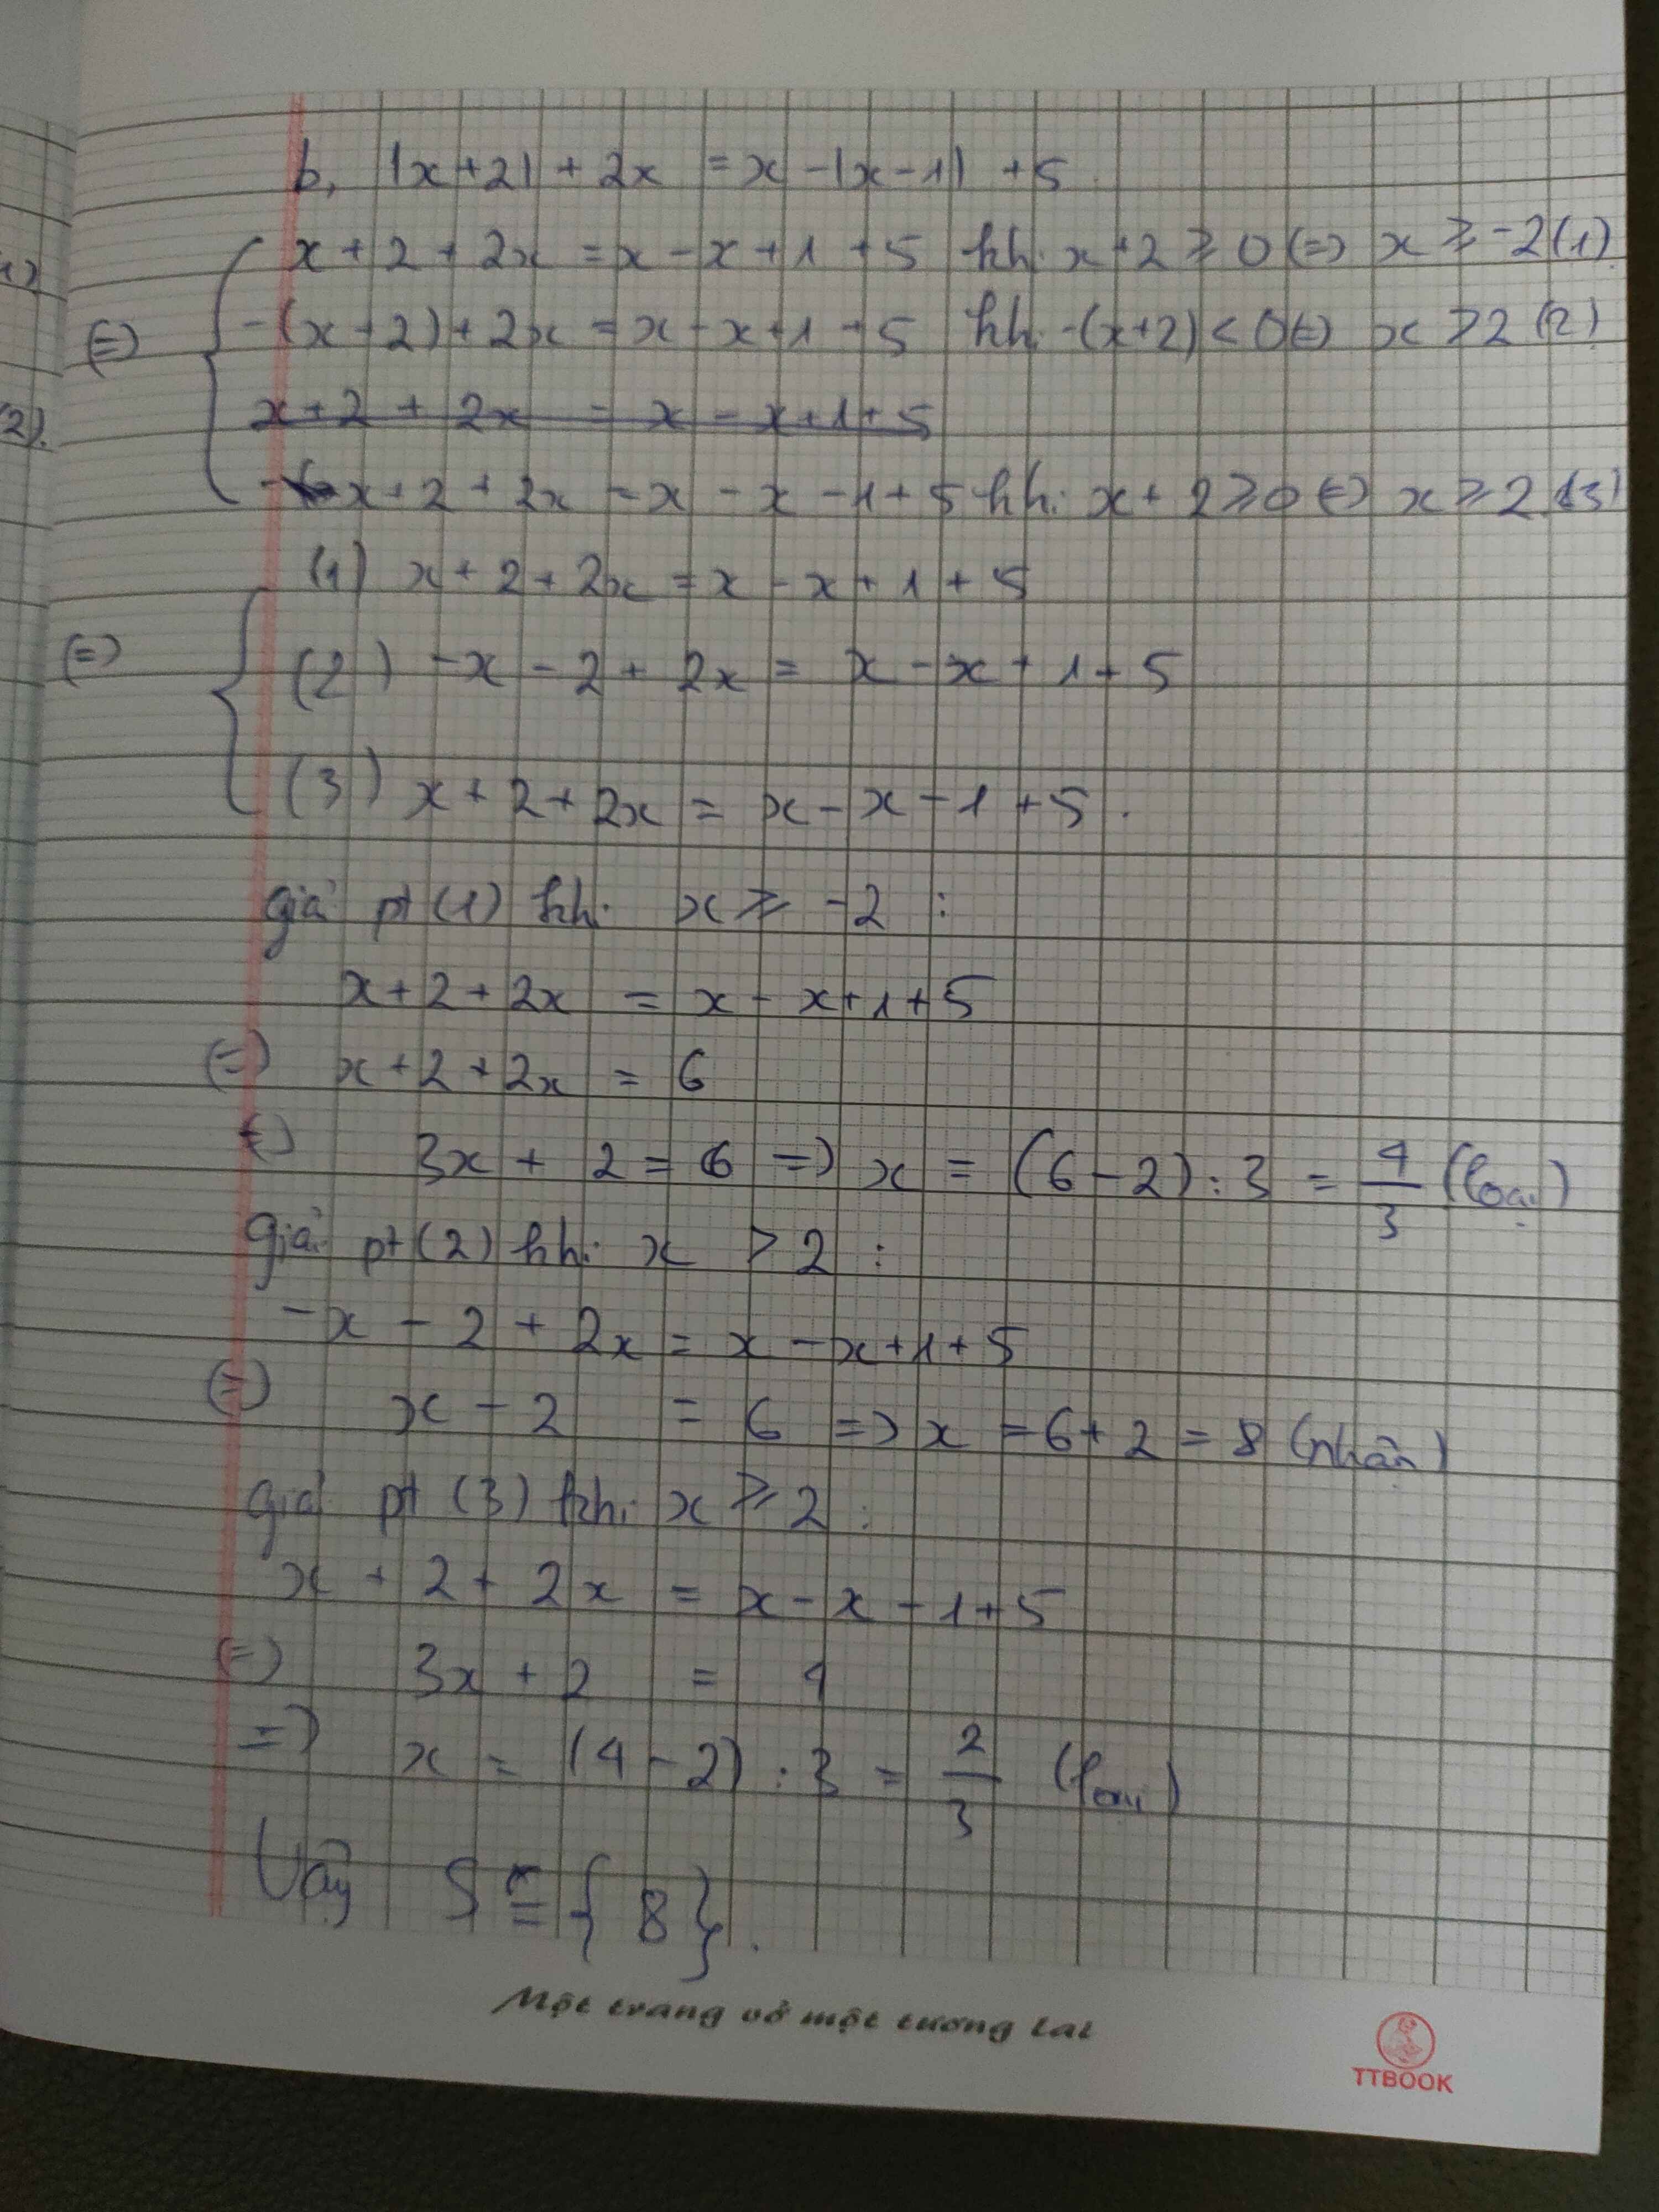 b, |x+2| + 2x = x - |x-1| + 5.
x + 2 + 2x = x - x + 1 + 5 khi x + 2 ≥ 0 (=) x ≥ -2 (1)
(=) -(x+2) + 2x = x - x + 1 + 5 khi -(x+2) < 0 (=) x > 2 (2)
x + 2 + 2x = x - x + 1 + 5
x + 2 + 2x = x - x - 1 + 5 khi x + 2 ≥ 0 (=) x ≥ 2 (3)
(1) x + 2 + 2x = x - x + 1 + 5
(=) (2) -x - 2 + 2x = x - x + 1 + 5
(3) x + 2 + 2x = x - x - 1 + 5.
giải pt (1) khi x ≥ -2 :
x + 2 + 2x = x - x + 1 + 5
(=) x + 2 + 2x = 6
(=) 3x + 2 = 6 => x = (6 - 2) : 3 = 4/3 (loại)
Giải pt (2) khi x > 2 :
-x - 2 + 2x = x - x + 1 + 5
(=) x - 2 = 6 => x = 6 + 2 = 8 (nhận)
giải pt (3) khi x ≥ 2 :
x + 2 + 2x = x - x - 1 + 5
(=) 3x + 2 = 4
=> x = (4 - 2) : 3 = 2/3 (loại)
Vậy S = { 8 }.
Một trang vở một tương lai
TTBOOK
(2).